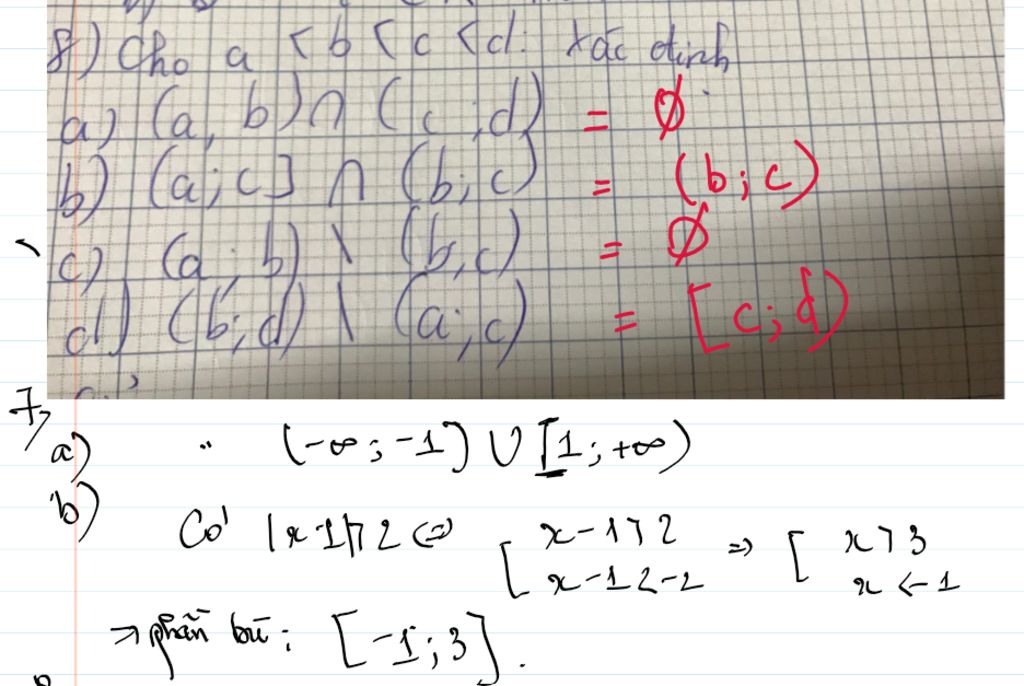 8) Cho a < b < c < d. Xác định
a) (a, b) ∩ (c ; d) = ∅
b) (a; c] ∩ (b; c) = (b; c)
c) (a ; b) \ (b, c) = ∅
d) (b; d) \ (a; c) = [c; d)
7,
a) (-∞; -1) ∪ [1; +∞)
b)
Có |x-1| > 2 ⇔ [ x-1 > 2 ⇒ [ x > 3
x-1 < -2 x < -1
→ phần bù: [-1; 3].